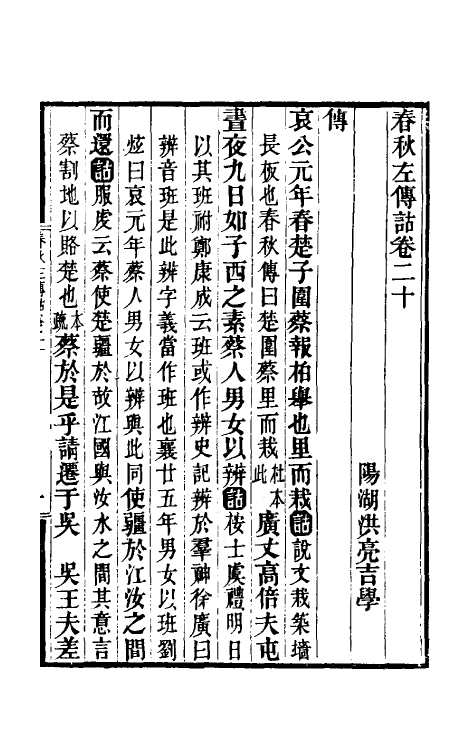 春秋左傳詁卷二十
陽湖洪亮吉學
傳
哀公元年春楚子圍蔡報柏舉也里而栽詁說文栽築牆
長板也春秋傳曰楚圍蔡里而栽杜本此廣丈高倍夫屯
晝夜九日如子西之素蔡人男女以辨詁按士虞禮明日
以其班祔鄭康成云班或作辨史記辨於羣神徐廣曰
辨音班是此辨字義當作班也襄廿五年男女以班劉
炫曰哀元年蔡人男女以辨與此同使疆於江汝之間
而還詁服虔云蔡使楚疆於故江國與汝水之間其意言
蔡割地以賂楚也本疏蔡於是乎請遷于吳　吳王夫差